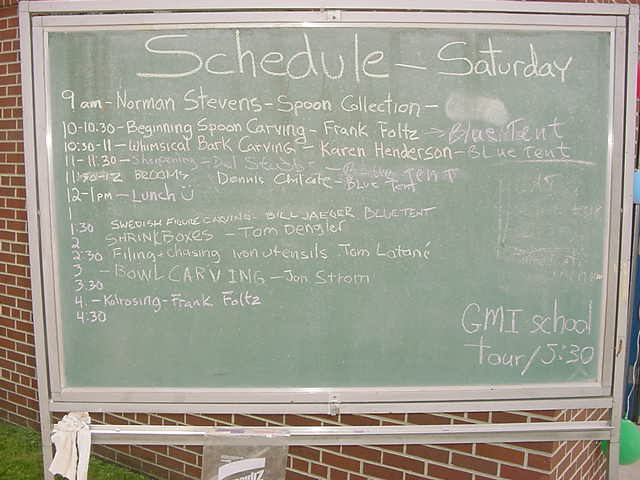 Schedule - Saturday
9 am - Norman Stevens - Spoon Collection -
10-10:30 - Beginning Spoon Carving - Frank Foltz -> Blue Tent
10:30-11 - Whimsical Bark Carving - Karen Henderson - BLUE Tent
11-11:30 - Sharpening - Del Stubbs - Blue Tent
11:30-12 BROOMS Dennis Chilcote - BLUE Tent
12-1pm - Lunch Ü
1
1:30 SWEDISH FIGURE CARVING - BILL JAEGER BLUE TENT
2 SHRINKBOXES - Tom Dengler
2:30 Filing + chasing iron utensils Tom Latané
3 - BOWL CARVING - Jon Strom
3:30
4 - Kolrosing - Frank Foltz
4:30
GMI school
tour / 5:30